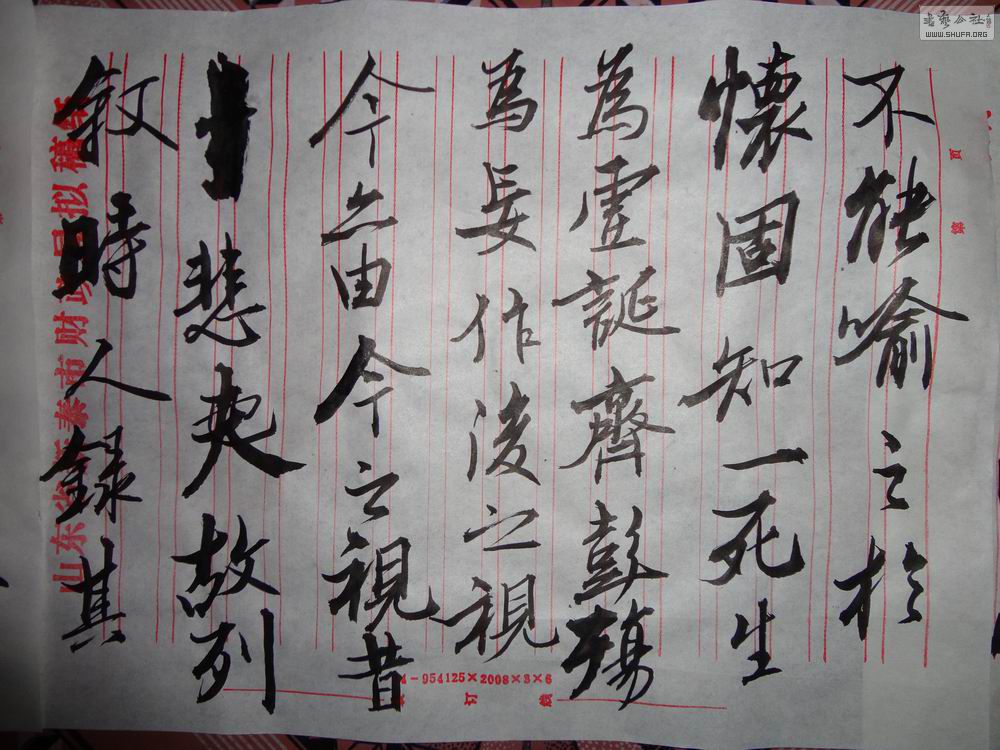 不能喻之於
懷固知一死生
為虛誕齊彭殤
為妄作後之視
今亦由今之視昔
悲夫故列
敘時人錄其
山东省新泰市财政局拟稿纸
-954125×2008×3×6
订 线
页
书艺公社
WWW.SHUFA.ORG